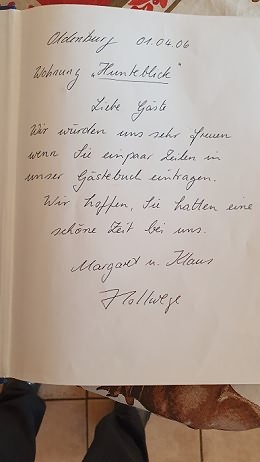 Oldenburg 01.04.06
Wohnung „Hunteblick"
Liebe Gäste
Wir würden uns sehr freuen
wenn Sie einpaar Zeilen in
unser Gästebuch eintragen.
Wir hoffen, Sie hatten eine
schöne Zeit bei uns.
Margaret u. Klaus
Hollwege